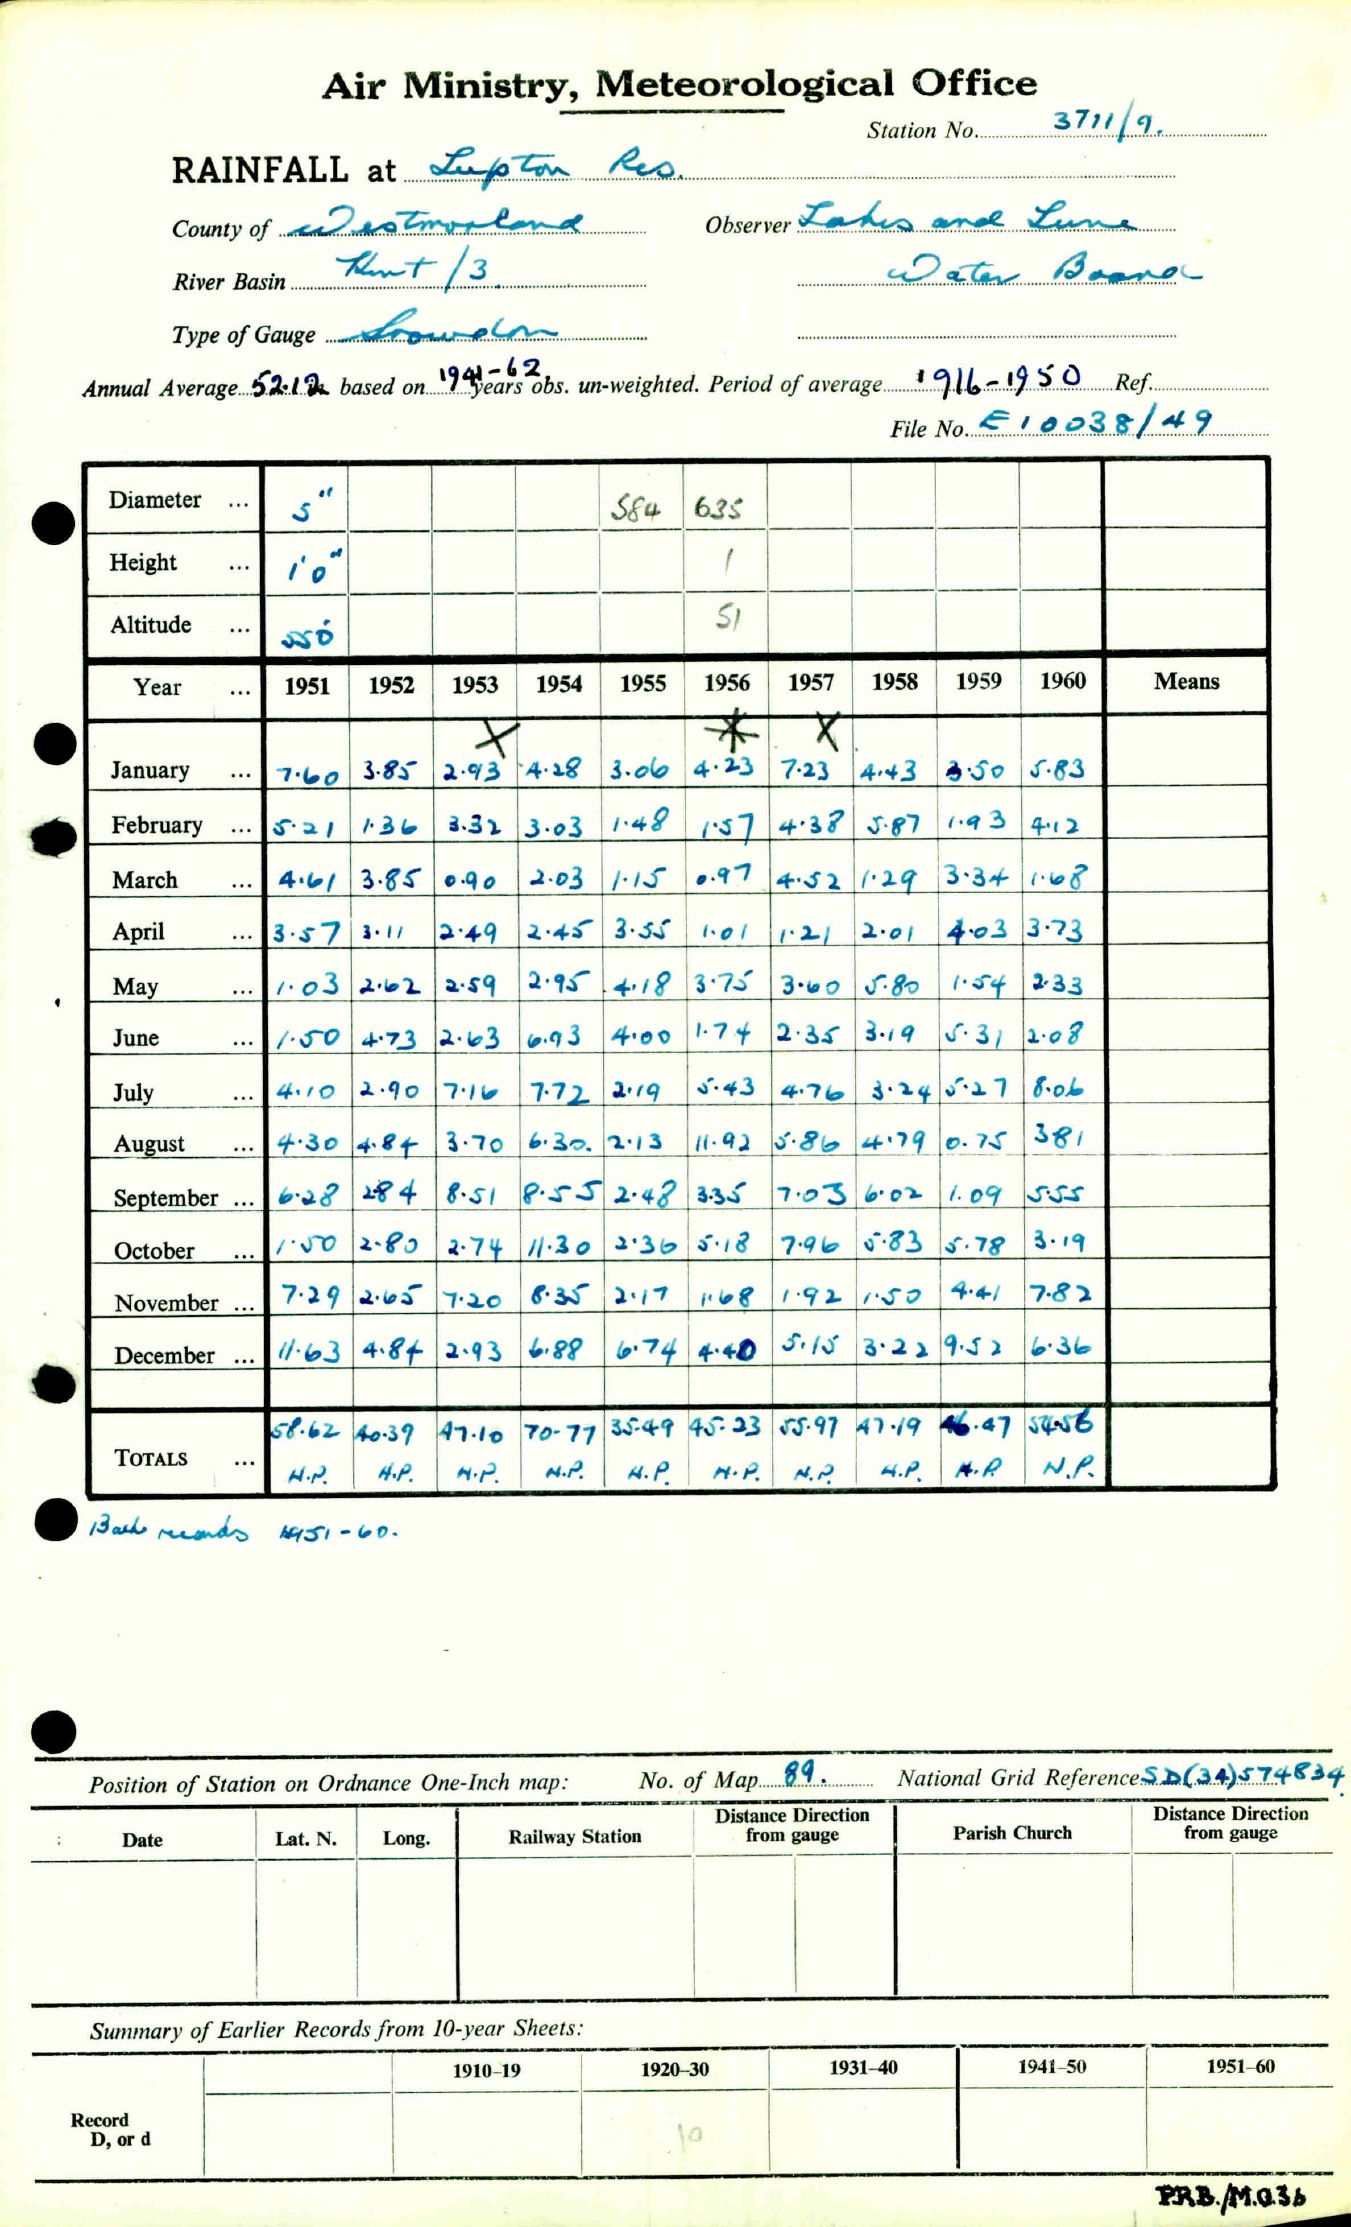 Air Ministry, Meteorological Office
Station No. 3711/9.
RAINFALL at Lupton Res.
County of Westmorland Observer Lakes and Lune
River Basin Kent /3. Water Board
Type of Gauge Snowdon
Annual Average 52.12 based on 1941-62 years obs. un-weighted. Period of average 1916-1950 Ref.
File No. E10038/49
Diameter ... 5" 584 635
Height ... 1'0" 1
Altitude ... 550' 51
Year ... 1951 1952 1953 1954 1955 1956 1957 1958 1959 1960 Means
X * X
January ... 7.60 3.85 2.93 4.28 3.06 4.23 7.23 4.43 3.50 5.83
February ... 5.21 1.36 3.32 3.03 1.48 1.57 4.38 5.87 1.93 4.12
March ... 4.61 3.85 0.90 2.03 1.15 0.97 4.52 1.29 3.34 1.68
April ... 3.57 3.11 2.49 2.45 3.55 1.01 1.21 2.01 4.03 3.73
May ... 1.03 2.62 2.59 2.95 4.18 3.75 3.60 5.80 1.54 2.33
June ... 1.50 4.73 2.63 6.93 4.00 1.74 2.35 3.19 5.31 2.08
July ... 4.10 2.90 7.16 7.72 2.19 5.43 4.76 3.24 5.27 8.06
August ... 4.30 4.84 3.70 6.30. 2.13 11.92 5.86 4.79 0.75 3.81
September ... 6.28 2.84 8.51 8.55 2.48 3.35 7.03 6.02 1.09 5.55
October ... 1.50 2.80 2.74 11.30 2.36 5.18 7.96 5.83 5.78 3.19
November ... 7.29 2.65 7.20 8.35 2.17 1.68 1.92 1.50 4.41 7.82
December ... 11.63 4.84 2.93 6.88 6.74 4.40 5.15 3.22 9.52 6.36
58.62 40.39 47.10 70.77 35.49 45.23 55.97 47.19 46.47 54.56
TOTALS ... N.P. N.P. N.P. N.P. N.P. N.P. N.P. N.P. N.P. N.P.
Bath records 1951-60.
Position of Station on Ordnance One-Inch map: No. of Map 89. National Grid Reference SD(34)574834
Date Lat. N. Long. Railway Station Distance Direction from gauge Parish Church Distance Direction from gauge
Summary of Earlier Records from 10-year Sheets:
1910–19 1920–30 1931–40 1941–50 1951–60
Record
D, or d
10
P.R.B./M.O.36